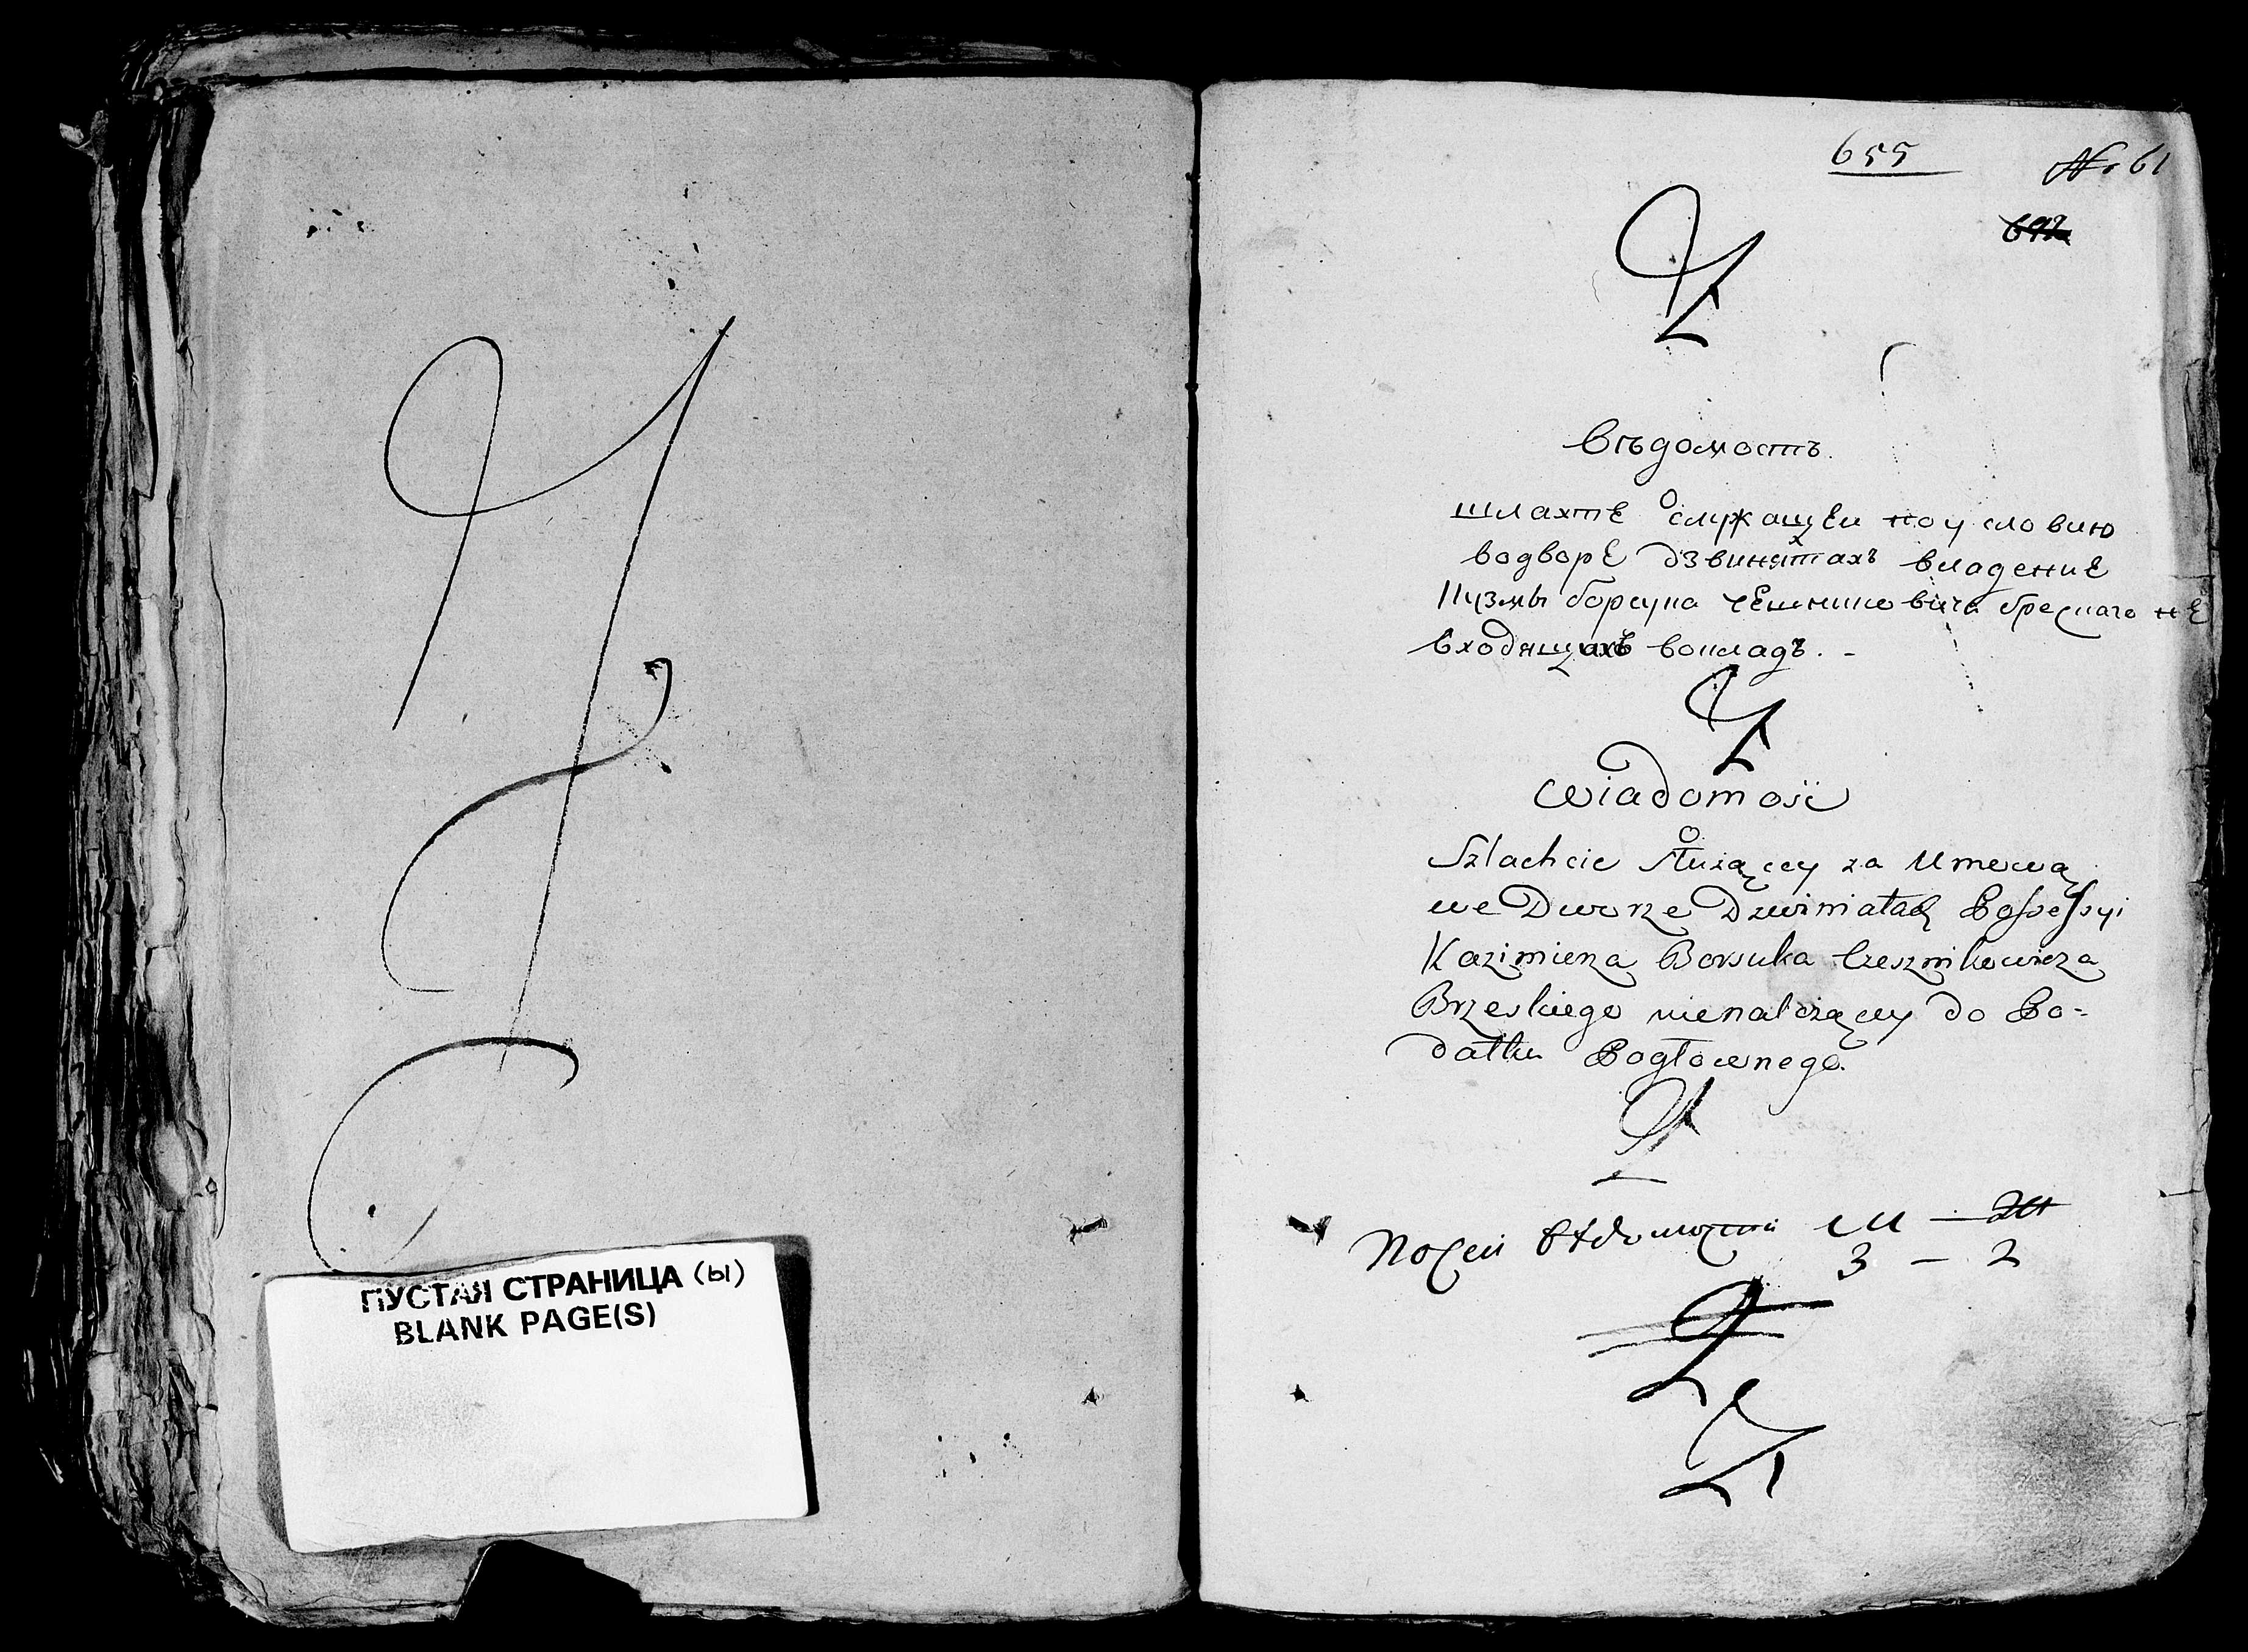 ПУСТАЯ СТРАНИЦА (Ы)
BLANK PAGE(S)
655
№ 61
692
Вѣдомостъ.
О
шлахтѣ служащеи по условию
водворе дзвинятахъ владение
Кузмы борсука чешникевича брескаго не
входящихъ вокладъ. -
Wiadomość
O
Szlachcie służącey za Umową
we Dworze Dzwiniatach Possessyi
Kazimierza Borsuka Czesznikowicza
Brzeskiego nienależącey do Po=
datku Pogłownego.
По сей вѣдомости М —
З — 2